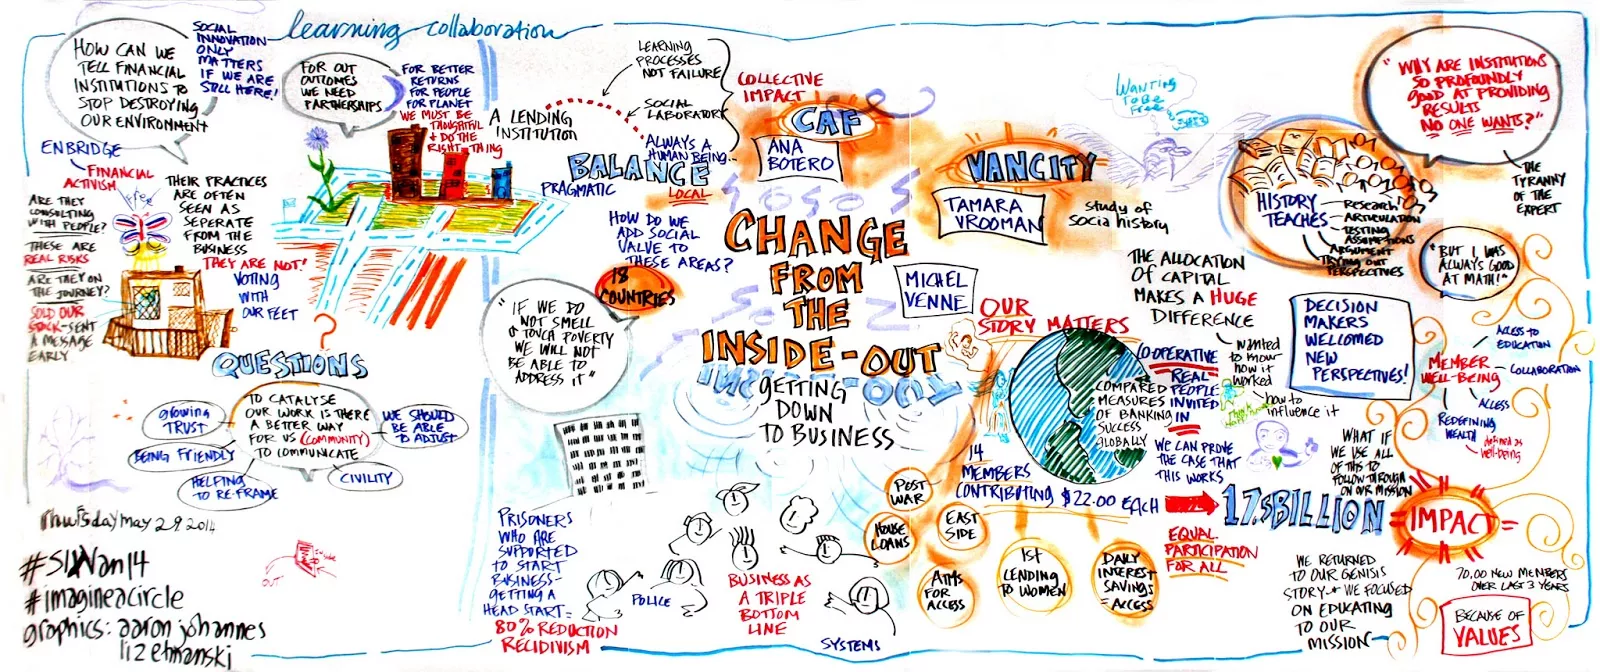 learning collaboration
HOW CAN WE
TELL FINANCIAL
INSTITUTIONS TO
STOP DESTROYING
OUR ENVIRONMENT
SOCIAL
INNOVATION
ONLY
MATTERS
IF WE ARE
STILL HERE!
FOR OUT
OUTCOMES
WE NEED
PARTNERSHIPS
FOR BETTER
RETURNS
FOR PEOPLE
FOR PLANET
WE MUST BE
THOUGHTFUL
+ DO THE
RIGHT THING
ENBRIDGE
FINANCIAL
ACTIVISM
ARE THEY
CONSULTING
WITH PEOPLE?
THESE ARE
REAL RISKS
ARE THEY ON
THE JOURNEY?
SOLD OUR
STOCK-SENT
A MESSAGE
EARLY
THEIR PRACTICES
ARE OFTEN
SEEN AS
SEPERATE
FROM THE
BUSINESS
THEY ARE NOT!
VOTING
WITH
OUR FEET
?
QUESTIONS
TO CATALYSE
OUR WORK IS THERE
A BETTER WAY
FOR US (COMMUNITY)
TO COMMUNICATE
growing
TRUST
BEING FRIENDLY
HELPING
TO RE-FRAME
CIVILITY
WE SHOULD
BE ABLE
TO ADJUST
Thursday May 29 2014
#SIWan14
#imagineacircle
graphics: aaron johannes
liz etmanski
OUT
A LENDING
INSTITUTION
LEARNING
PROCESSES
NOT FAILURE
SOCIAL
LABORATORY
ALWAYS A
HUMAN BEING...
BALANCE
PRAGMATIC
LOCAL
HOW DO WE
ADD SOCIAL
VALUE TO
THESE AREAS?
18
COUNTRIES
"IF WE DO
NOT SMELL
& TOUCH POVERTY
WE WILL NOT
BE ABLE TO
ADDRESS IT"
COLLECTIVE
IMPACT
CAF
ANA
BOTERO
CHANGE
FROM
THE
INSIDE-OUT
GETTING
DOWN
TO BUSINESS
MICHEL
VENNE
PRISONERS
WHO ARE
SUPPORTED
TO START
BUSINESS-
GETTING A
HEAD START=
80% REDUCTION
RECIDIVISM
POLICE
BUSINESS AS
A TRIPLE
BOTTOM
LINE
SYSTEMS
VANCITY
TAMARA
VROOMAN
study of
socia history
WANTING
TO BE
FREE
HISTORY
TEACHES
Research
ARTICULATION
TESTING
ASSUMPTIONS
ARGUMENT
TRYING OUT
PERSPECTIVES
"WHY ARE INSTITUTIONS
SO PROFOUNDLY
GOOD AT PROVIDING
RESULTS
NO ONE WANTS?"
THE
TYRANNY
OF THE
EXPERT
"BUT I WAS
ALWAYS GOOD
AT MATH!"
THE ALLOCATION
OF CAPITAL
MAKES A HUGE
DIFFERENCE
wanted
to know
how it
worked
how to
influence it
DECISION
MAKERS
WELCOMED
NEW
PERSPECTIVES!
OUR
STORY MATTERS
COMPARED
MEASURES
OF BANKING
SUCCESS
GLOBALLY
CO-OPERATIVE
REAL
PEOPLE
INVITED
IN
WE CAN PROVE
THE CASE THAT
THIS WORKS
14
MEMBERS
CONTRIBUTING $22.00 EACH
17.5 BILLION
=IMPACT=
EQUAL
PARTICIPATION
FOR ALL
POST
WAR
HOUSE
LOANS
EAST
SIDE
AIMS
FOR
ACCESS
1ST
LENDING
TO WOMEN
DAILY
INTEREST
SAVINGS
=ACCESS
ACCESS TO
EDUCATION
MEMBER
WELL-BEING
COLLABORATION
ACCESS
REDEFINING
WEALTH
defined as
well-being
WHAT IF
WE USE ALL
OF THIS TO
FOLLOW THROUGH
ON OUR MISSION
WE RETURNED
TO OUR GENISIS
STORY-* WE FOCUSED
ON EDUCATING
TO OUR
MISSION
70.00 NEW MEMBERS
OVER LAST 3 YEARS
BECAUSE OF
VALUES